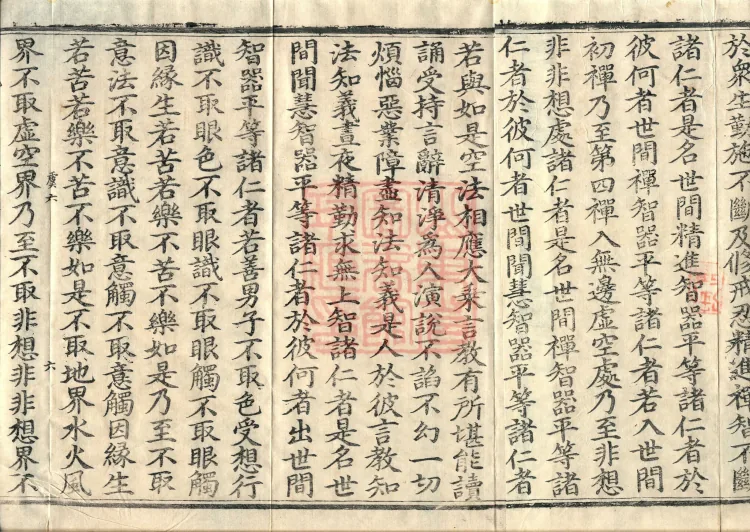 於眾生勤施不斷及修戒忍精進禪智不斷
諸仁者是名世間精進智器平等諸仁者於
彼何者世間禪智器平等諸仁者若入世間
初禪乃至第四禪入無邊虛空處乃至非想
非非想處諸仁者是名世間禪智器平等諸
仁者於彼何者世間聞慧智器平等諸仁者
若與如是空法相應大乘言教有所堪能讀
誦受持言辭清淨為人演說不諂不幻一切
煩惱惡業障盡知法知義是人於彼言教知
法知義晝夜精勤求無上智諸仁者是名世
間聞慧智器平等諸仁者於彼何者出世間
智器平等諸仁者若善男子不取色受想行
識不取眼色不取眼識不取眼觸不取眼觸
因緣生若苦若樂不苦不樂如是乃至不取
意法不取意識不取意觸不取意觸因緣生
若苦若樂不苦不樂如是不取地界水火風
虞六
六
界不取虛空界乃至不取非想非非想界不